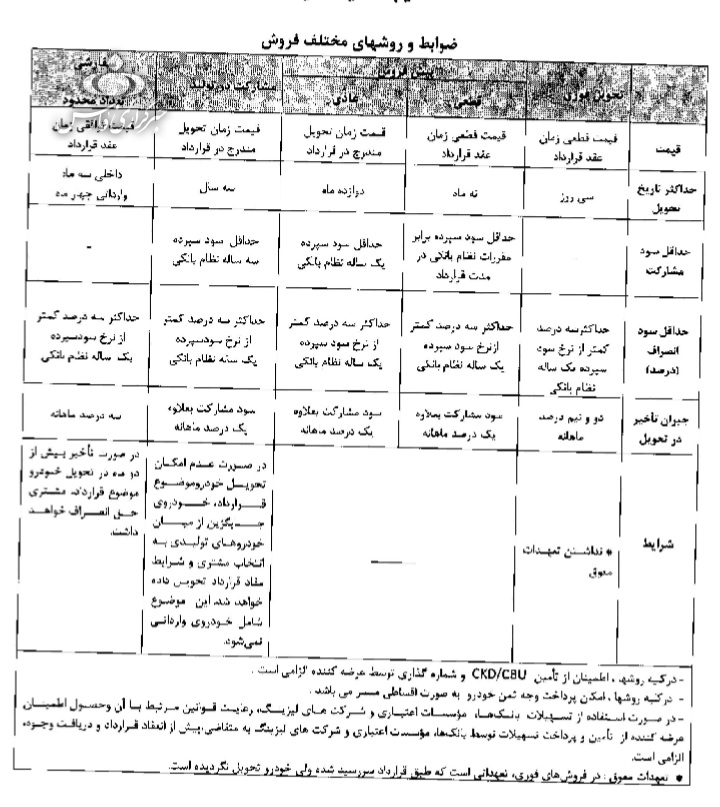 ضوابط و روشهای مختلف فروش
تحویل فوری
پیش فروش
قطعی
عادی
مشارکت در تولید
سفارشی
تعداد محدود
قیمت
قیمت قطعی زمان
عقد قرارداد
قیمت قطعی زمان
عقد قرارداد
قیمت زمان تحویل
مندرج در قرارداد
قیمت زمان تحویل
مندرج در قرارداد
قیمت توافقی زمان
عقد قرارداد
حداکثر تاریخ
تحویل
سی روز
نه ماه
دوازده ماه
سه سال
داخلی سه ماه
وارداتی چهار ماه
حداقل سود
مشارکت
حداقل سود سپرده برابر
مقررات نظام بانکی در
مدت قرارداد
حداقل سود سپرده
یک ساله نظام بانکی
حداقل سود سپرده
سه ساله نظام بانکی
-
حداقل سود
انصراف
(درصد)
حداکثر سه درصد
کمتر از نرخ سود
سپرده یک ساله
نظام بانکی
حداکثر سه درصد کمتر
از نرخ سود سپرده
یک ساله نظام بانکی
حداکثر سه درصد کمتر
از نرخ سود سپرده
یک ساله نظام بانکی
حداکثر سه درصد کمتر
از نرخ سودسپرده
یک ساله نظام بانکی
حداکثر سه درصد کمتر
از نرخ سودسپرده
یک ساله نظام بانکی
جبران تأخیر
در تحویل
دو و نیم درصد
ماهانه
سود مشارکت بعلاوه
یک درصد ماهانه
سود مشارکت بعلاوه
یک درصد ماهانه
سود مشارکت بعلاوه
یک درصد ماهانه
سه درصد ماهانه
شرایط
* نداشتن تعهدات
معوق
در صورت عدم امکان
تحویل خودروموضوع
قرارداد، خودروی
جایگزین از میان
خودروهای تولیدی به
انتخاب مشتری و شرایط
مفاد قرارداد تحویل داده
خواهد شد. این موضوع
شامل خودروی وارداتی
نمی‌شود.
در صورت تأخیر بیش از
دو ماه در تحویل خودرو
موضوع قرارداد، مشتری
حق انصراف خواهد
داشت.
- درکلیه روشها، اطمینان از تأمین CKD/CBU و شماره گذاری توسط عرضه کننده الزامی است .
- درکلیه روشها، امکان پرداخت وجه ثمن خودرو به صورت اقساطی میسر می باشد .
- در صورت استفاده از تسهیلات بانک‌ها، مؤسسات اعتباری و شرکت های لیزینگ، رعایت قوانین مرتبط با آن وحصول اطمینان
عرضه کننده از تأمین و پرداخت تسهیلات توسط بانک‌ها، مؤسسات اعتباری و شرکت های لیزینگ به متقاضی، پیش از انعقاد قرارداد و دریافت وجوه،
الزامی است.
* تعهدات معوق : در فروش‌های فوری، تعهداتی است که طبق قرارداد سررسید شده ولی خودرو تحویل نگردیده است.